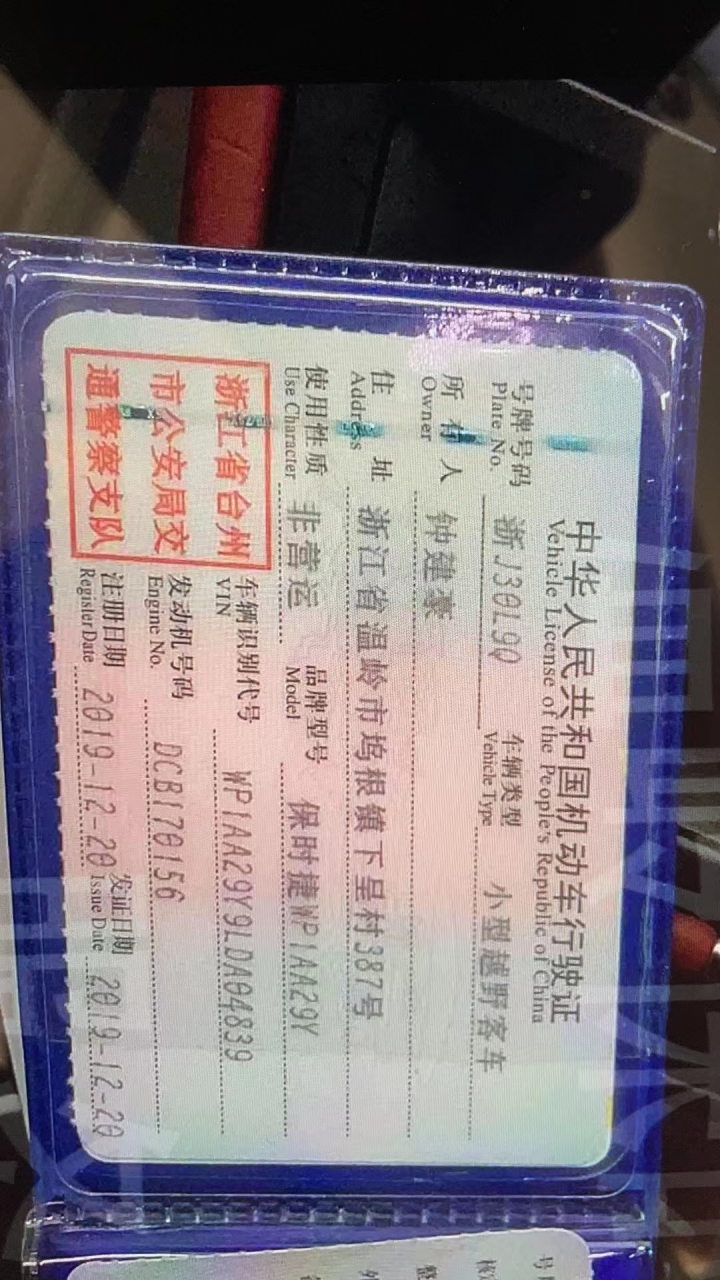 中华人民共和国机动车行驶证
Vehicle License of the People's Republic of China
号牌号码 浙J30L9Q 车辆类型 小型越野客车
Plate No. Vehicle Type
所有人 钟建豪
Owner
住址 浙江省温岭市坞根镇下呈村387号
Address
使用性质 非营运 品牌型号 保时捷WP1AA29Y
Use Character Model
浙江省台州
市公安局交
通警察支队
车辆识别代号 WP1AA29Y9LDA04839
VIN
发动机号码 DCB170156
Engine No.
注册日期 2019-12-20 发证日期 2019-12-20
Register Date Issue Date
号
核
整
外